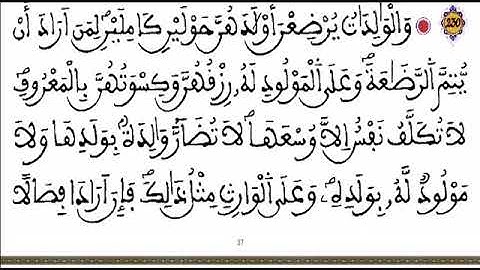 230 وَالْوَالِدَاتُ يُرْضِعْنَ أَوْلَادَهُنَّ حَوْلَيْنِ كَامِلَيْنِ لِمَنْ أَرَادَ أَنْ
يُّتِمَّ الرَّضَاعَةَ وَعَلَى الْمَوْلُودِ لَهُ رِزْقُهُنَّ وَكِسْوَتُهُنَّ بِالْمَعْرُوفِ
لَا تُكَلَّفُ نَفْسٌ إِلَّا وُسْعَهَا لَا تُضَآرَّ وَالِدَةٌ بِوَلَدِهَا وَلَا
مَوْلُودٌ لَّهُ بِوَلَدِهِ وَعَلَى الْوَارِثِ مِثْلُ ذَالِكَ فَإِنْ أَرَادَا فِصَالًا
37